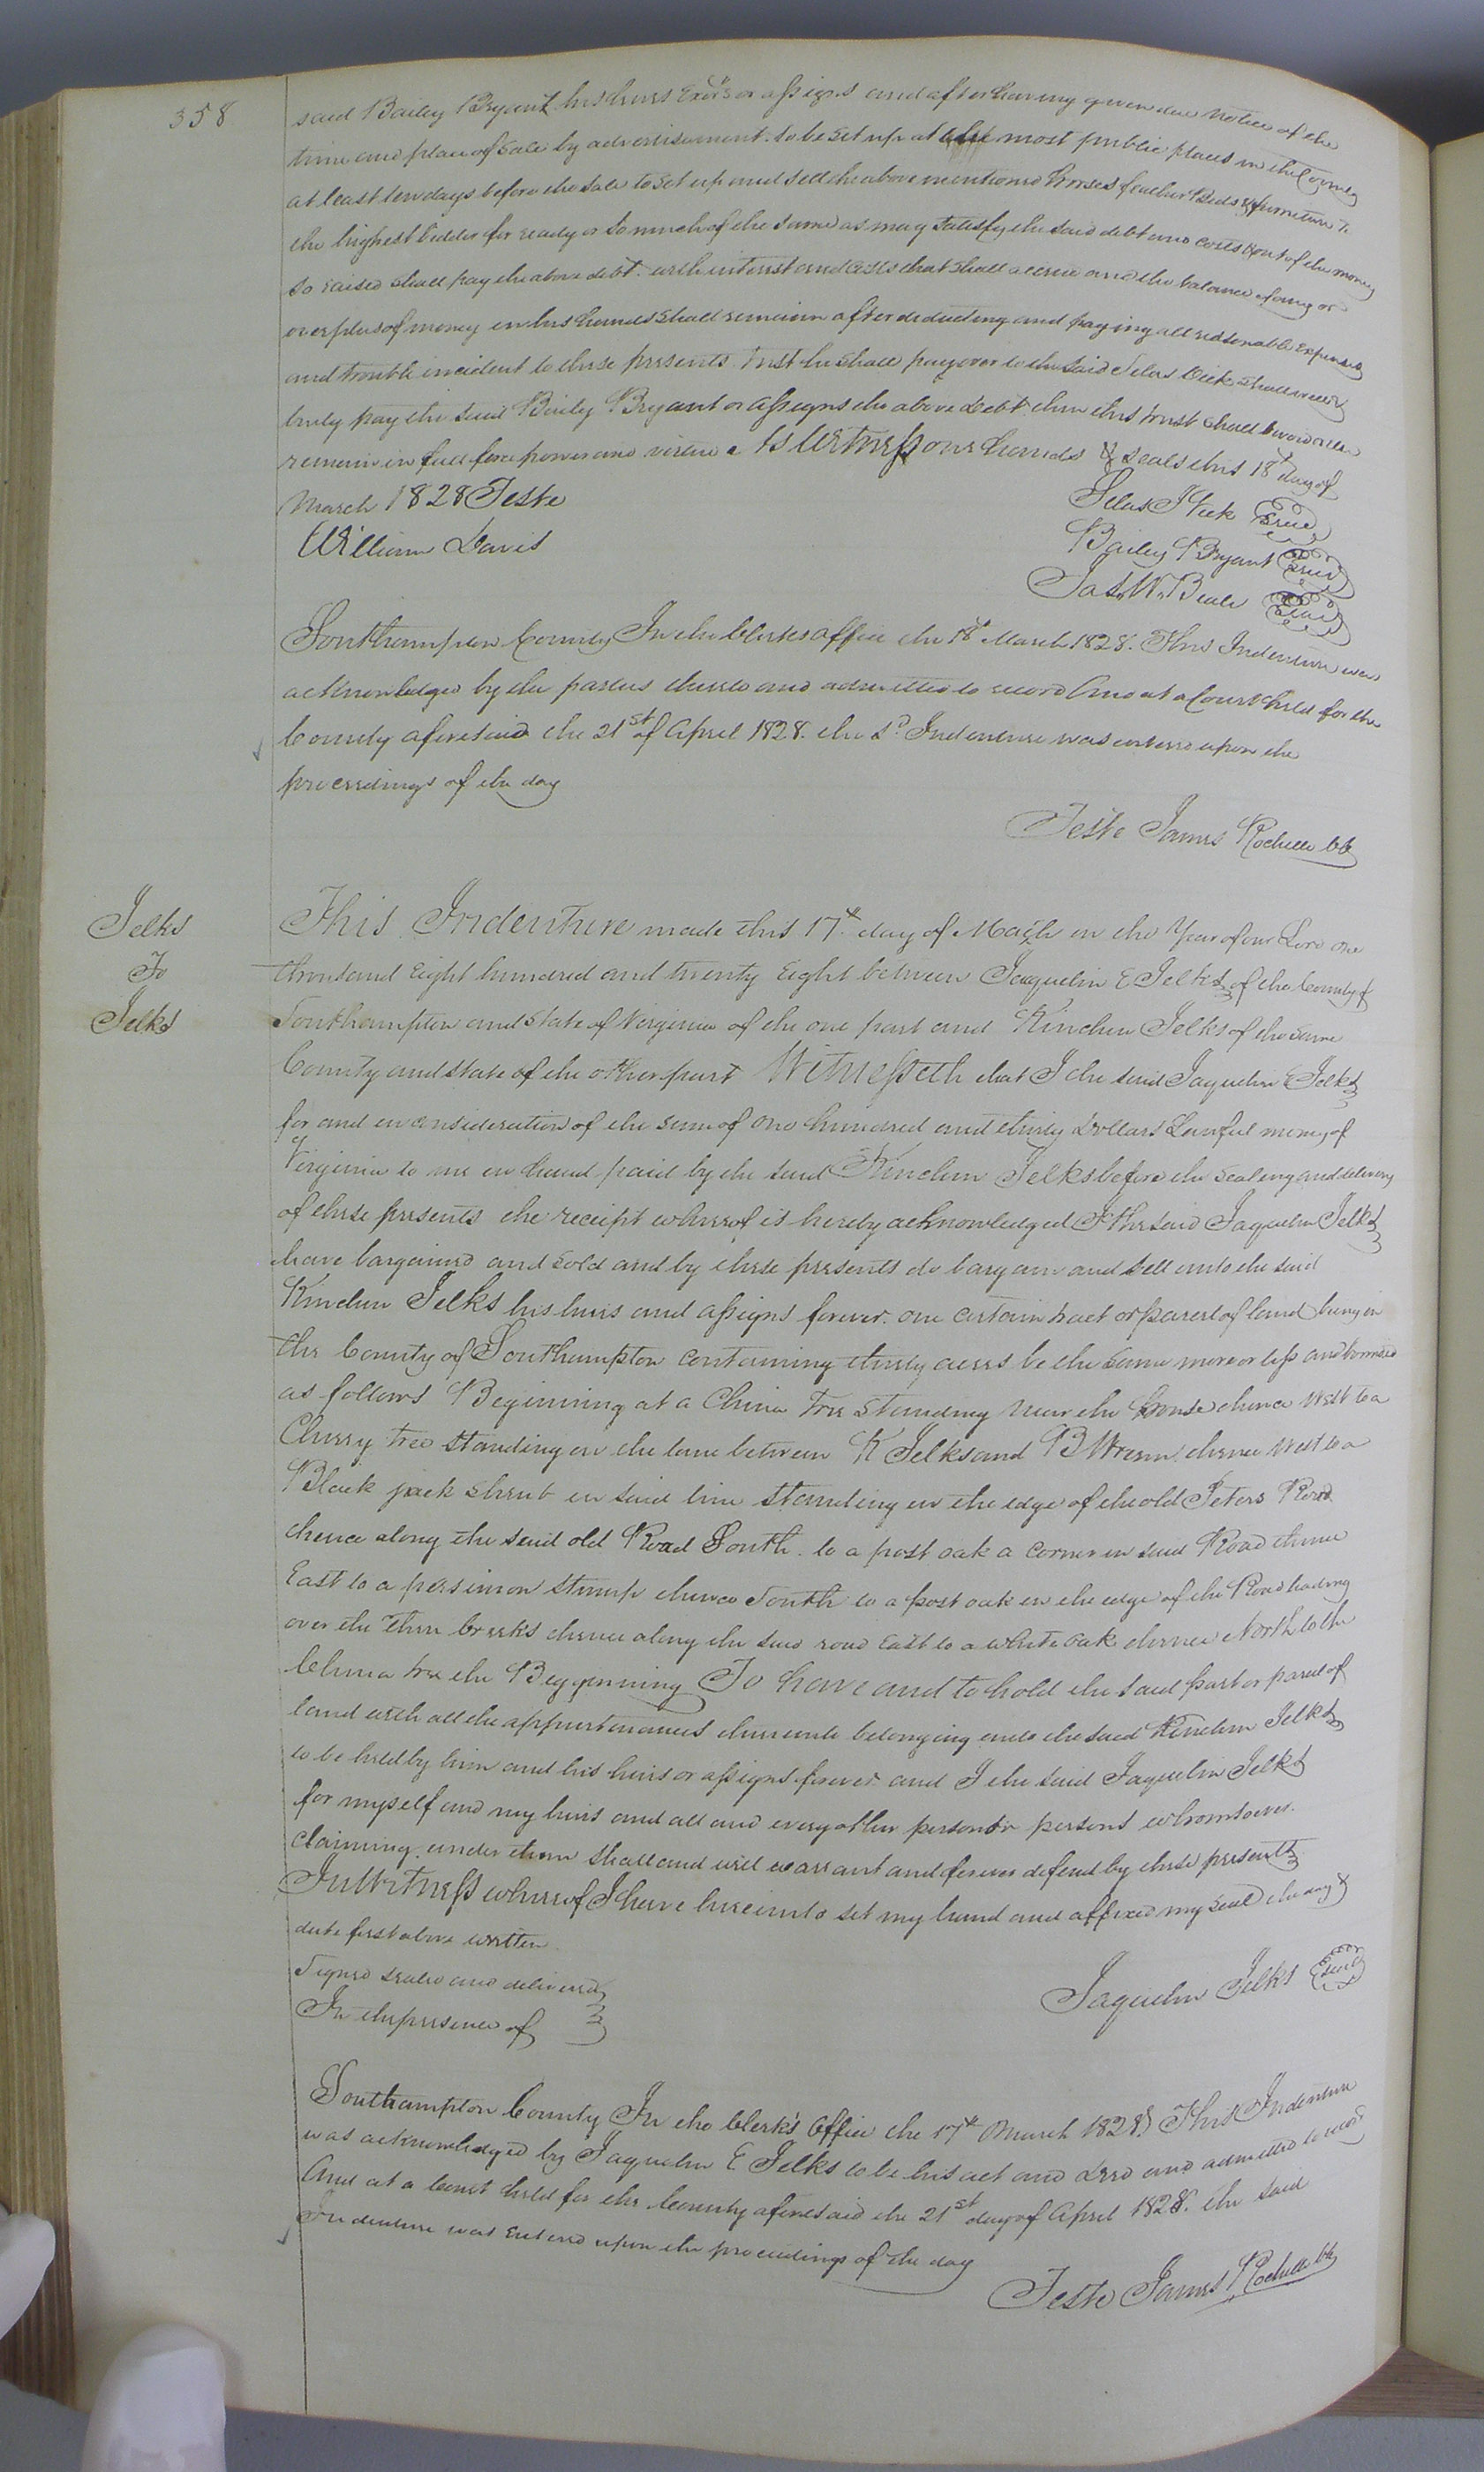 358
said Bailey Bryant his heirs Exors or assigns and after having given due notice of the
time and place of sale by advertisement to be set up at the most public places in the County
at least ten days before the sale to set up and sell the above mentioned horses feather Beds & furniture to
the highest bidder for ready or so much of the same as may satisfy the said debt and costs & out of the money
so raised shall pay the above debt with interest and costs that shall accrue and the balance if any or
overplus of money in his hands shall remain after deducting and paying all reasonable expenses
and trouble incident to these presents trust he shall pay over to the said Silas shall well &
truly pay the said Baily Bryant or assigns the above debt then this trust shall be void else
remain in full force power and virtue As Witness our hands & seals this 18th day of
March 1828 Teste
Silas J Seal
William Davis
Bailey Bryant Seal
Jas. W. Beale Seal
Southampton County In the Clerks office the 18th March 1828. This Indenture was
acknowledged by the parties thereto and admitted to record And at a Court held for the
County aforesaid the 21st of April 1828. the sd. Indenture was entered upon the
proceedings of the day
Teste James Rochelle CC
Jelks
To
Jelks
This Indenture made this 17th day of March in the Year of our Lord one
thousand Eight hundred and twenty Eight between Jaquelin E Jelks of the County of
Southampton and State of Virginia of the one part and Kinchen Jelks of the same
County and State of the other part Witnesseth that I the said Jaquelin E Jelks
for and in consideration of the sum of one hundred and thirty Dollars Lawful money of
Virginia to me in hand paid by the said Kinchen Jelks before the sealing and delivery
of these presents the receipt whereof is hereby acknowledged I the said Jaquelin Jelks
have bargained and sold and by these presents do bargain and sell unto the said
Kinchen Jelks his heirs and assigns forever one certain tract or parcel of land being in
the County of Southampton containing thirty acres be the same more or less and bounded
as follows Beginning at a China tree standing near the house thence West to a
Cherry tree standing on the line between K Jelks and B Wrenn thence West to a
Black jack shrub in said line standing in the edge of the old Peters Road
thence along the said old Road South to a post oak a corner in said Road thence
East to a persimon stump thence South to a post oak in the edge of the Road leading
over the Three creeks thence along the said road East to a white oak thence North to the
China tree the Beggenning To have and to hold the said part or parcel of
land with all the appurtenances thereunto belonging unto the said Kinchen Jelks
to be held by him and his heirs or assigns forever and I the said Jaquelin Jelks
for myself and my heirs and all and every other person or persons whomsoever
claiming under them shall and will warrant and forever defend by these presents
In Witness whereof I have hereunto set my hand and affixed my seal the day &
date first above written
Signed sealed and delivered
In the presence of
Jaquelin Jelks Seal
Southampton County In the Clerk's Office the 17th March 1828 This Indenture
was acknowledged by Jaquelin E. Jelks to be his act and deed and admitted to record
And at a Court held for the County aforesaid the 21st day of April 1828. the said
Indenture was Entered upon the proceedings of the day
Teste James Rochelle CC